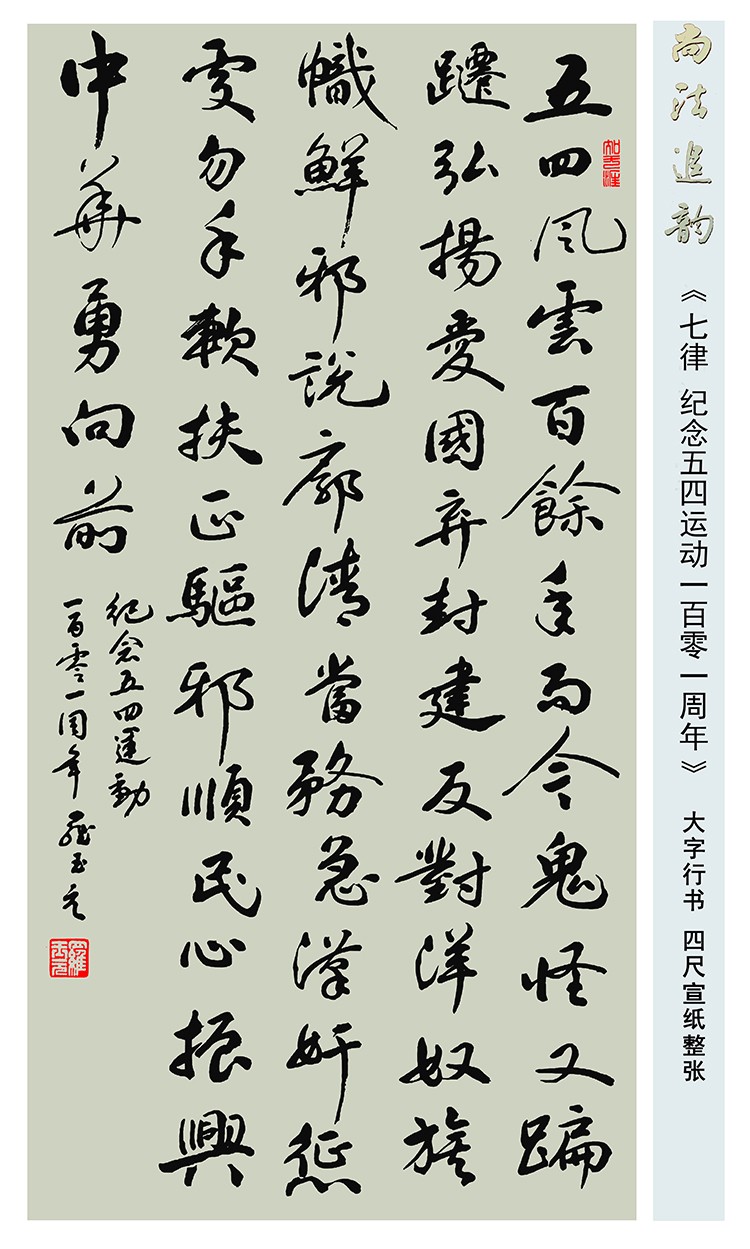 尚法追韵
《七律 纪念五四运动一百零一周年》 大字行书 四尺宣纸整张
五四風雲百餘年而今鬼怪又蹁
躚弘揚愛國弃封建反對洋奴旗
幟鮮邪說廓清當務急漢奸懲
處勿手軟扶正驅邪順民心振興
中華勇向前
紀念五四運動
一百零一周年